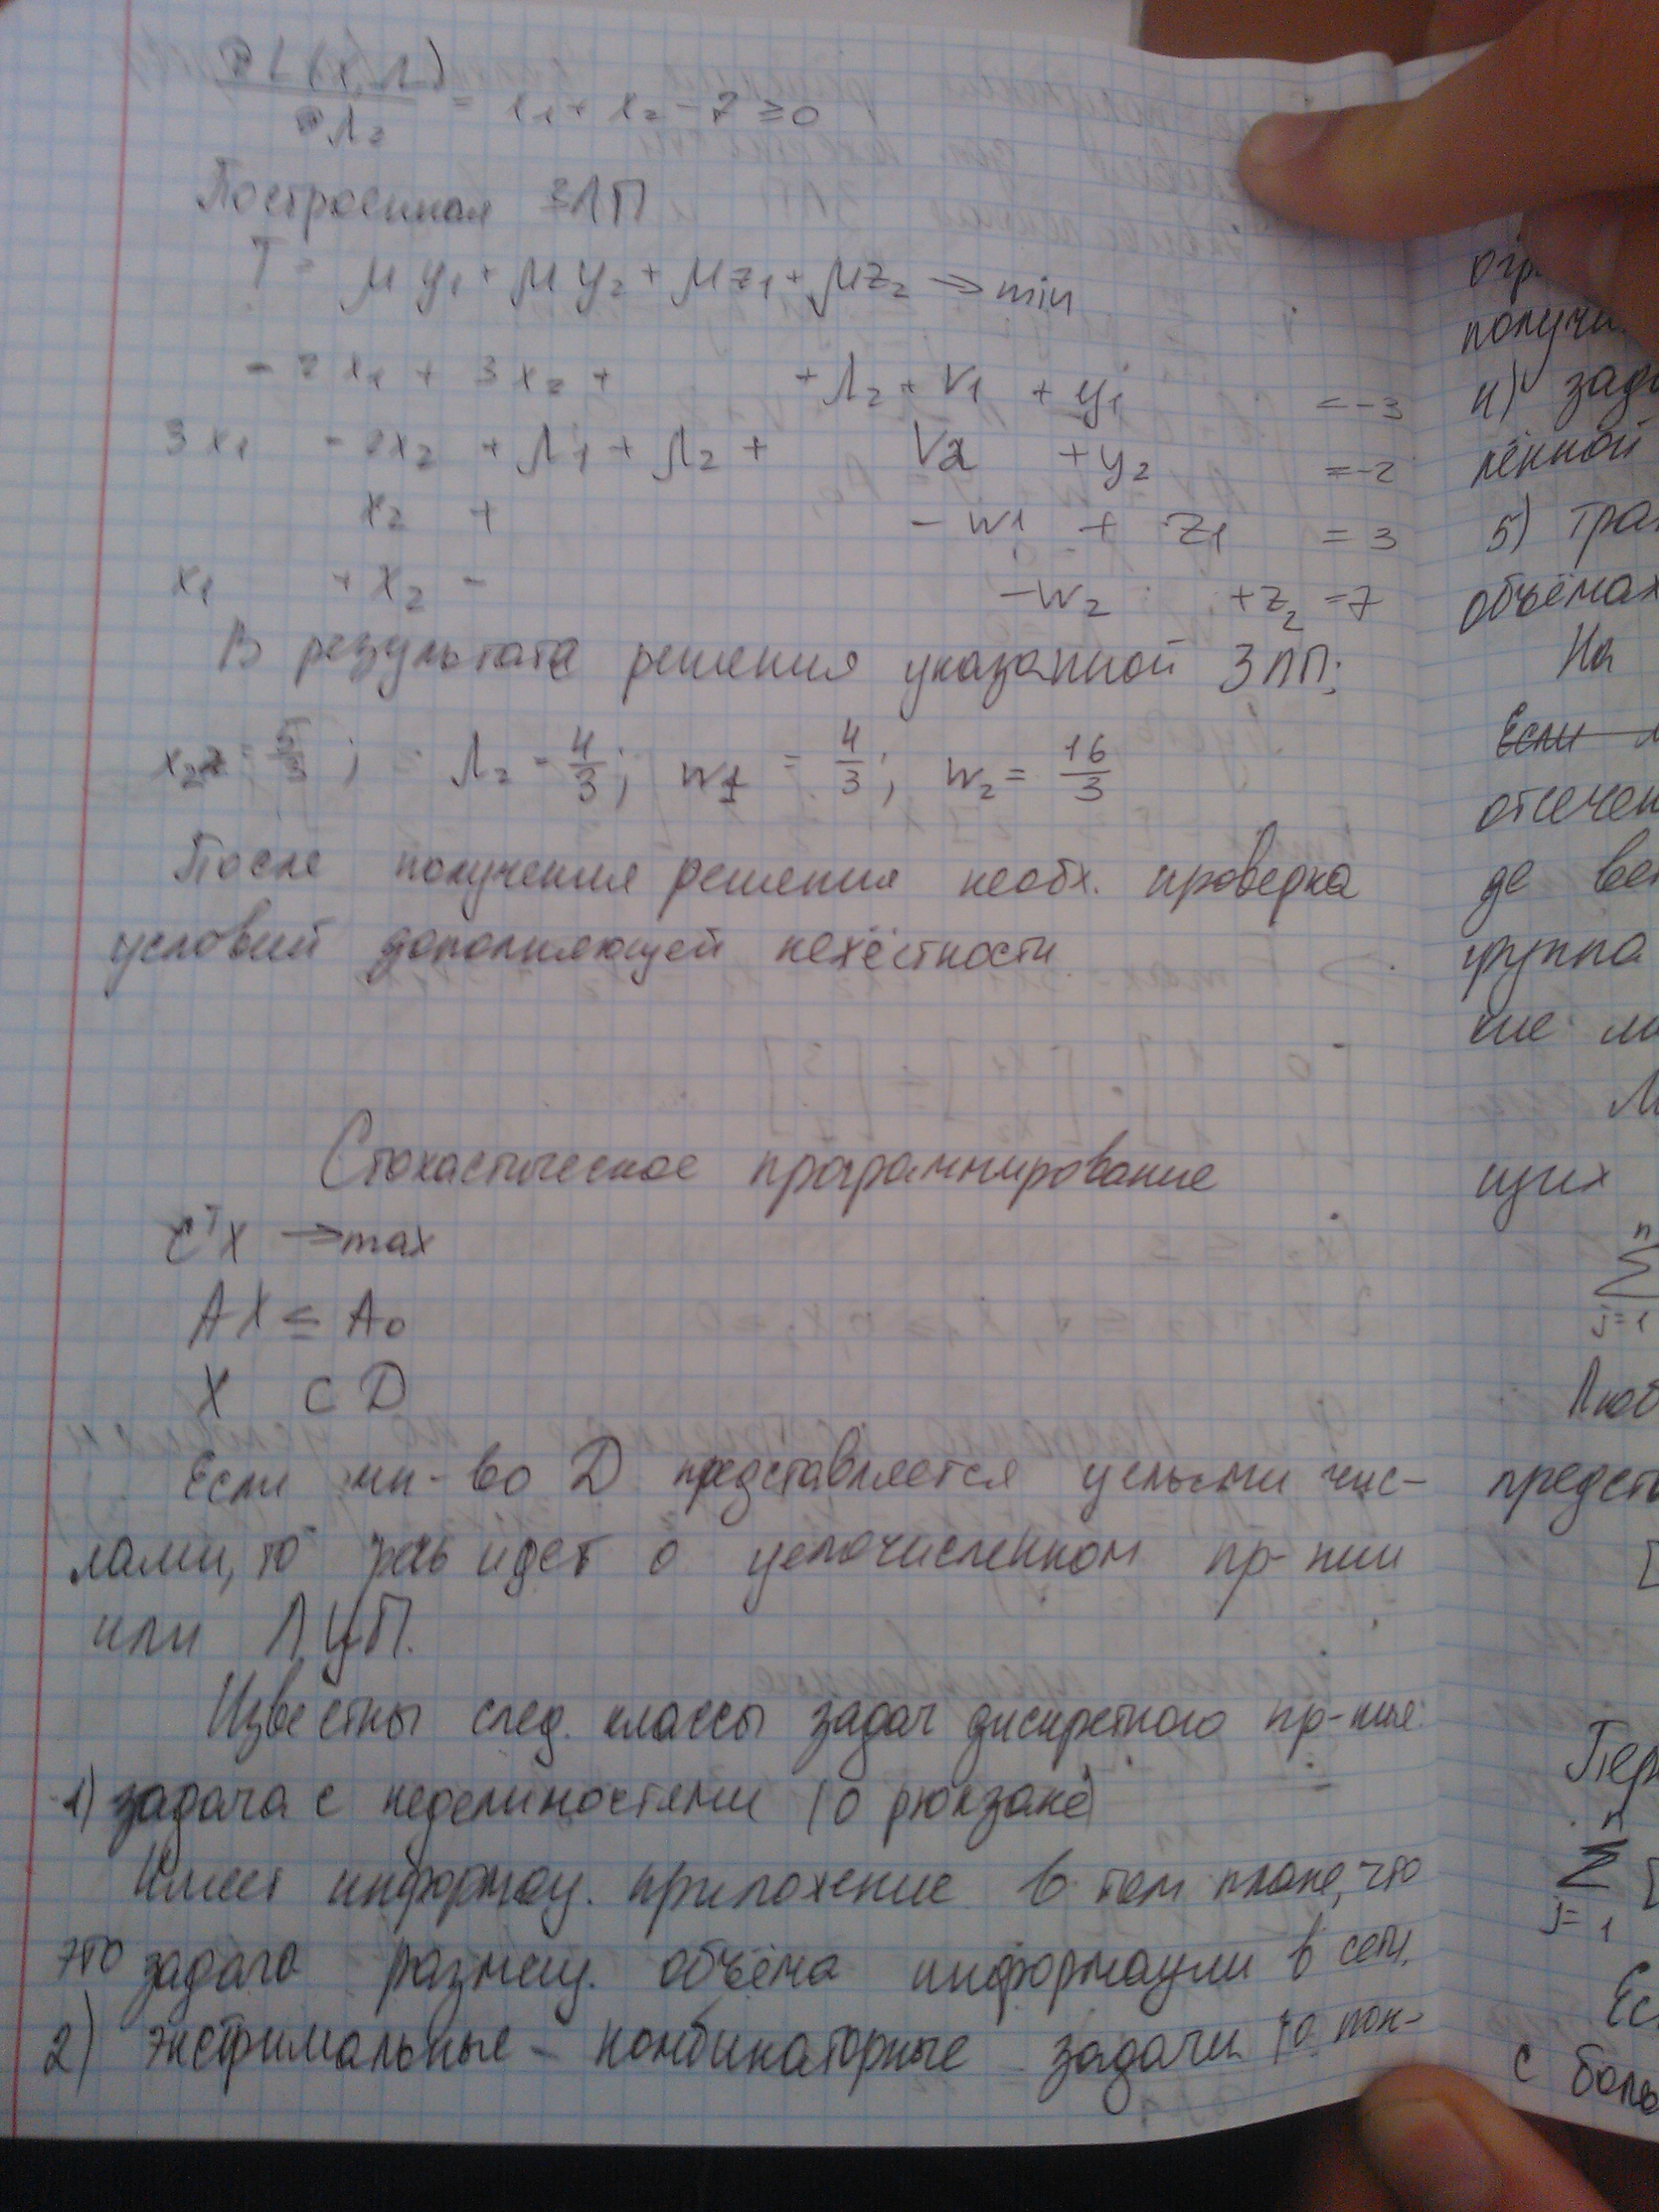 ∂L(x,Λ)
∂Λ₂ = x₁ + x₂ - 7 ≥ 0
Построенная ЗЛП
T = μy₁ + μy₂ + μz₁ + μz₂ → min
- 2x₁ + 3x₂ + + Λ₂ + V₁ + y₁ = -3
3x₁ - 2x₂ + Λ₁ + Λ₂ + V₂ + y₂ = -2
x₂ + - w₁ + z₁ = 3
x₁ + x₂ - - w₂ + z₂ = 7
В результате решения указанной ЗЛП:
x₂ = 5/3; Λ₂ = 4/3; w₁ = 4/3; w₂ = 16/3
После получения решения необх. проверка
условий дополняющей нежёсткости
Стохастическое программирование
CᵀX → max
AX ≤ A₀
X ⊂ D
Если мн-во D представляется целыми чис-
лами, то речь идет о целочисленном пр-нии
или ЛЦП.
Известны след. классы задач дискретного пр-ния:
1) задача с неделимостями (о рюкзаке)
Имеет информац. приложение в том плане, что
это задача размещ. объёма информации в сети.
2) экстримальные - комбинаторные задачи
получи
4) зад
ленной
5) тра
объёмах
На
Если
отсечен
де
группа
кие
щих
n
∑
j=1
Люб
предст
Пер
n
∑
j=1
Ес
с боль